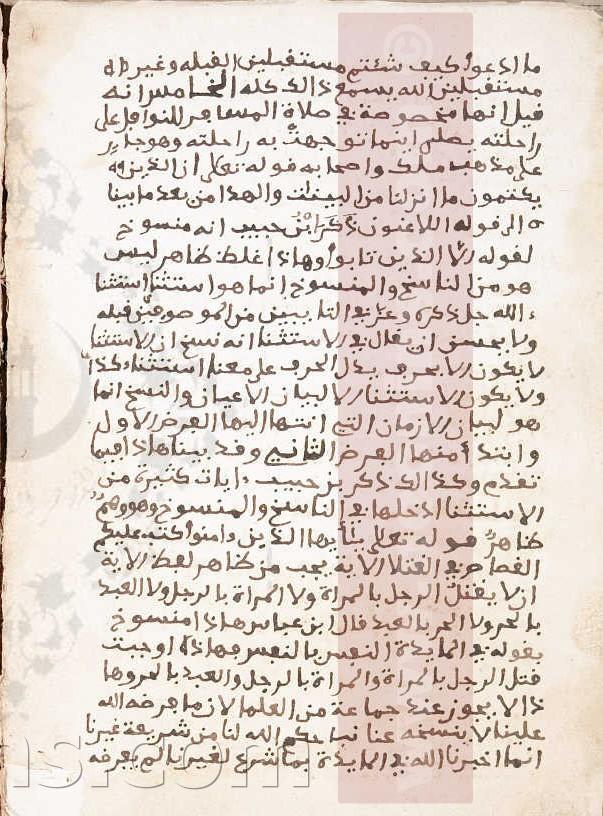 ما ادعوا كيف شئتم مستقبلين القبلة وغير
مستقبلين الله يسمع ذالك كله الخامس انه
قيل انها مخصوصة في صلاة المسافر للنوافل على
راحلته يصلي اينما توجهت به راحلته وهو جايز
على مذهب ملك واصحابه قوله تعلى ان الذين
يكتمون ما انزلنا من البينت والهدا من بعد ما بينا
ه الى قوله اللاعنون ذكر ابن حبيب انه منسوخ
لقوله الا الذين تابوا وهاذا غلط ظاهر ليس
هو من الناسخ والمنسوخ انما هو استثنا استثنا
ه الله جل ذكره وعز في التايبين من الموصوفين قبله
ولا يحسن ان يقال في الاستثنا انه نسخ لان الاستثنا
لا يكون الا بحرف يدل الحرف على معنا الاستثناء كذا
ولا يكون الاستثنا الا لبيان الاعيان والنسخ انما
هو لبيان الازمان التي انتها اليها الفرض الاول
وابتدا منها الفرض الثاني وقد بينا هاذا فيما
تقدم وكذالك ذكر بن حبيب ءايات كثيرة من
الاستثنا ادخلها في الناسخ والمنسوخ وهو وهم
ظاهر قوله تعلى يأيها الذين ءامنوا كتب عليكم
القصاص في القتلا الاية يجب من ظاهر لفظ الاية
ان لا يقتل الرجل بالمراة ولا المراة بالرجل ولا العبد
بالحر ولا الحر بالعبد قال ابن عباس هاذا منسوخ
بقوله في المايدة النفس بالنفس فهاذه اوجبت
قتل الرجل بالمراة والمراة بالرجل والعبد بالحر وها
ذا لا يجوز عند جماعة من العلما لان ما فرضه الله
علينا لا ينسخه عنا ما حكم الله لنا من شريعة غيرنا
انما اخبرنا الله في المايدة بما شرع لغيرنا لم يفرضه